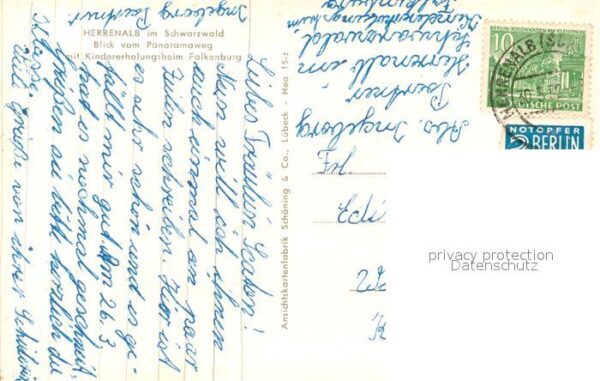 HERRENALB im Schwarzwald
Blick vom Panoramaweg
mit Kindererholungsheim Falkenburg
Liebes Fräulein
Nun will ich ihnen
auch einmal ein paar
Zeilen schreiben. Hier ist
es sehr schön und es ge-
fällt mir gut. Am 26.3.
hat es nochmal geschneit.
Grüßen sie bitte herzlich die
Klasse.
Viele Grüße von ihrer Schülerin
Ingeborg
Ansichtskartenfabrik Schöning & Co., Lübeck · Hea 15-z
Abs. Ingeborg
Herrenalb im
Schwarzwald
Kindererholungsheim
Falkenburg
Frl.
10
DEUTSCHE POST
HERRENALB
NOTOPFER
2 BERLIN
privacy protection
Datenschutz